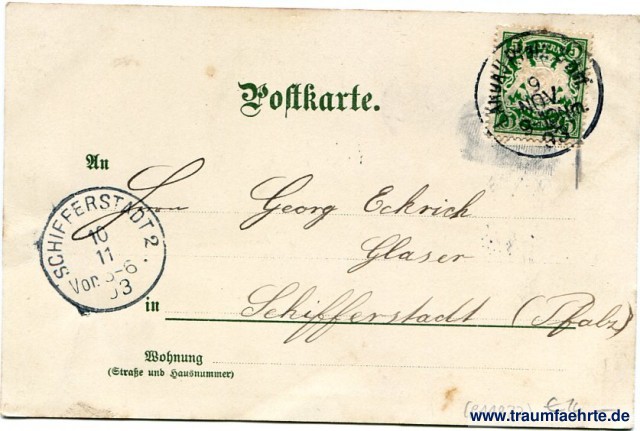 Postkarte.
5 BAYERN 5
9
NOV
An
Herrn Georg Eckrich
Glaser
in Schifferstadt (Pfalz)
SCHIFFERSTADT 2.
10
11
Vor. 5-6
03
Wohnung
(Straße und Hausnummer)
www.traumfaehrte.de